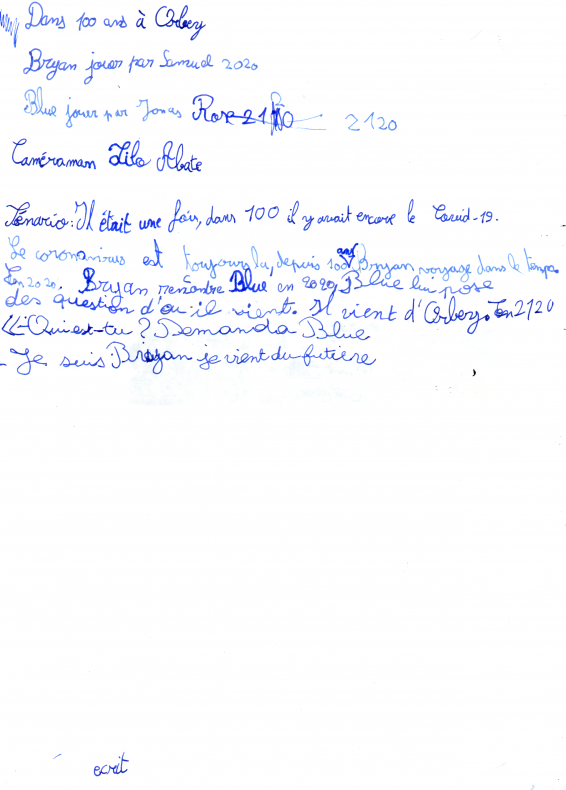 Dans 100 ans à Orbey
Bryan jouer par Samuel 2020
Blue jouer par Jonas 2120
Caméraman Lilo Abate
Sénario: Il était une fois, dans 100 il y avait encore le Covid-19.
Le coronavirus est toujours la, depuis 100 ans Bryan voyage dans le temps
En 2020. Bryan rencontre Blue en 2020, Blue lui pose
des question d'ou il vient. Il vient d'Orbey. En 2120
«-Qui est-tu? Demanda Blue
- Je suis Bryan je vient du futiere
ecrit